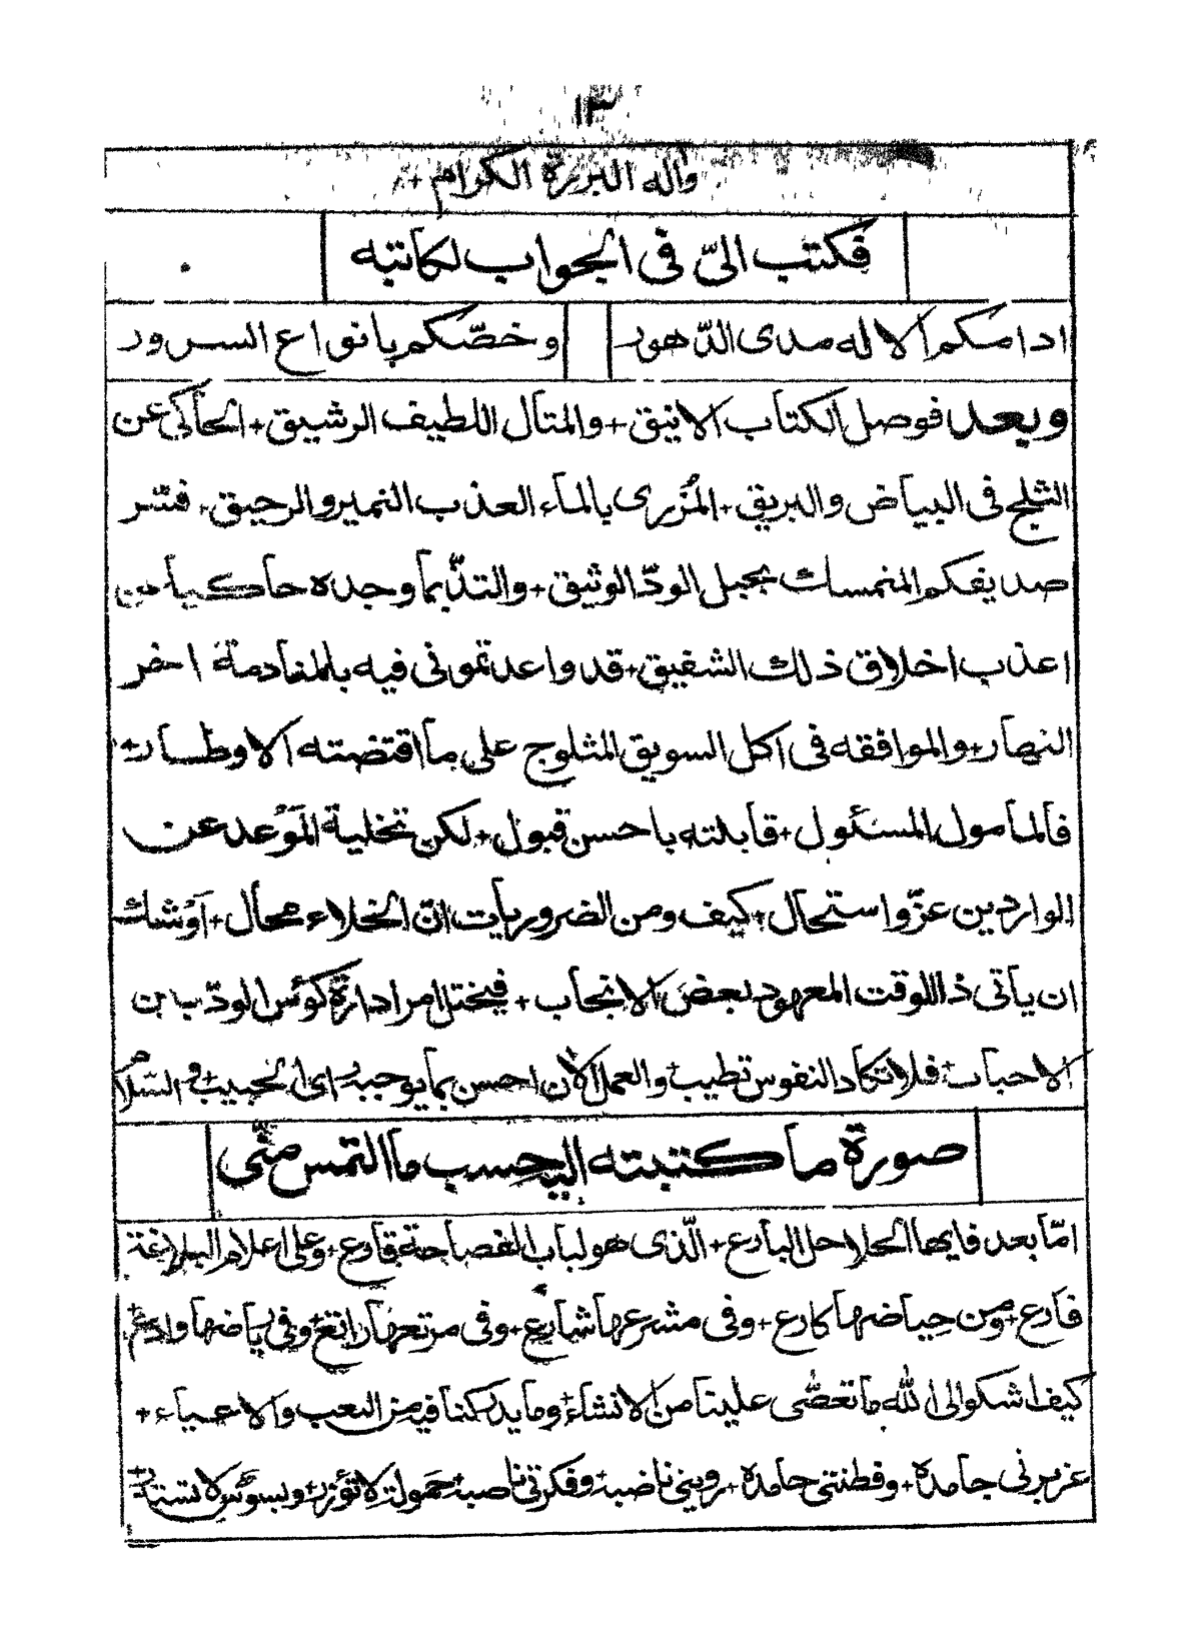 ١٣
وآله البررة الكرام +
فكتب الىّ فى الجواب لكاتبه
ادامكم الاله مدى الدّهور وخصّكم بانواع السرور
وبعد فوصل الكتاب الانيق + والمثال اللطيف الرشيق + الحاكى عن
الثلج فى البياض والبريق + المُزرى بالماء العذب النمير والرحيق + فسّر
صديقكم المتمسك بحبل الودّ الوثيق + والتذّ بما وجده حاكيا من
اعذب اخلاق ذلك الشفيق + قد واعدتمونى فيه بالمنادمة اخر
النهار + والموافقه فى اكل السويق المثلوج على ما اقتضته الاوطار +
فالمامول المسئول + قابلته باحسن قبول + لكن تخلية المَوْعد عن
الواردين عزّ واستحال + كيف ومن الضروريات انّ الخلاء محال + اَوْشك
ان ياتى ذا الوقت المعهود بعض الانجاب + فيختل امر ادارة كوٴس الودّ بين
الاحباب + فلا تكاد النفوس تطيب + والعمل الآن احسن بما يوجبه راى الحبيب + والسّلام
صورة ما كتبته اليه حسب ما التمس منّى
امّا بعد فايها الحلاحل البارع + الّذى هو لباب الفصاحة قارع + وعلى اعلام البلاغة
فارع + ومن حياضها كارع + وفى مشرعها شارع + وفى مرتعها راتع + وفى رياضها وادع +
كيف اشكو الى الله ما تعصّى علينا من الانشاء + وما يدركنا فيه من التعب والاعياء +
عزيزتى جامدة + وفطنتى خامدة + رويتى ناضبة + وفكرتى ناصبة + حمولة لا توٴزر + وبسوٴس لا تستدر +